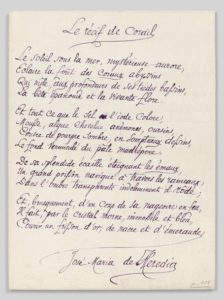 Le récif de Corail
Le soleil sous la mer, mystérieuse aurore,
Éclaire la forêt des Coraux abyssins
Qui mêle, aux profondeurs de ses tièdes bassins,
La bête épanouie et la vivante flore.
Et tout ce que le Sel ou l'iode Colore,
Mousse, algue Chevelue, anémones, oursins,
Couvre de pourpre sombre, en somptueux dessins,
Le fond vermiculé du pâle madrépore.
De sa splendide écaille éteignant les émaux,
Un grand poisson navigue à travers les rameaux;
Dans l'ombre transparente indolemment il rôde;
Et, brusquement, d'un Coup de sa nageoire en feu,
Il fait, par le Cristal morne, immobile et bleu,
Courir un frisson d'or, de nacre et d'émeraude,
José Maria de Heredia